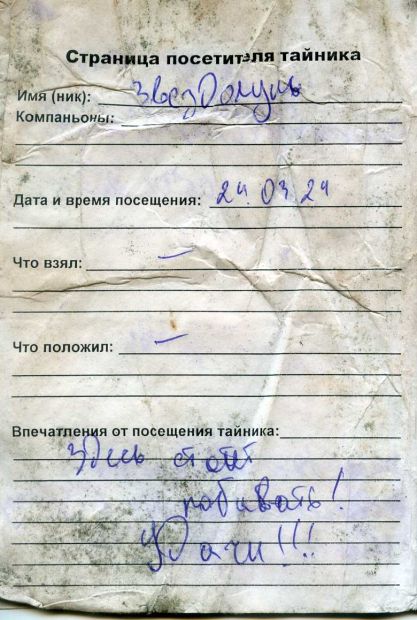 Страница посетителя тайника
Имя (ник): ЗвездОлуль
Компаньоны:
Дата и время посещения: 24.03.24
Что взял: —
Что положил: —
Впечатления от посещения тайника:
здесь стоит
побывать!
Удачи!!!